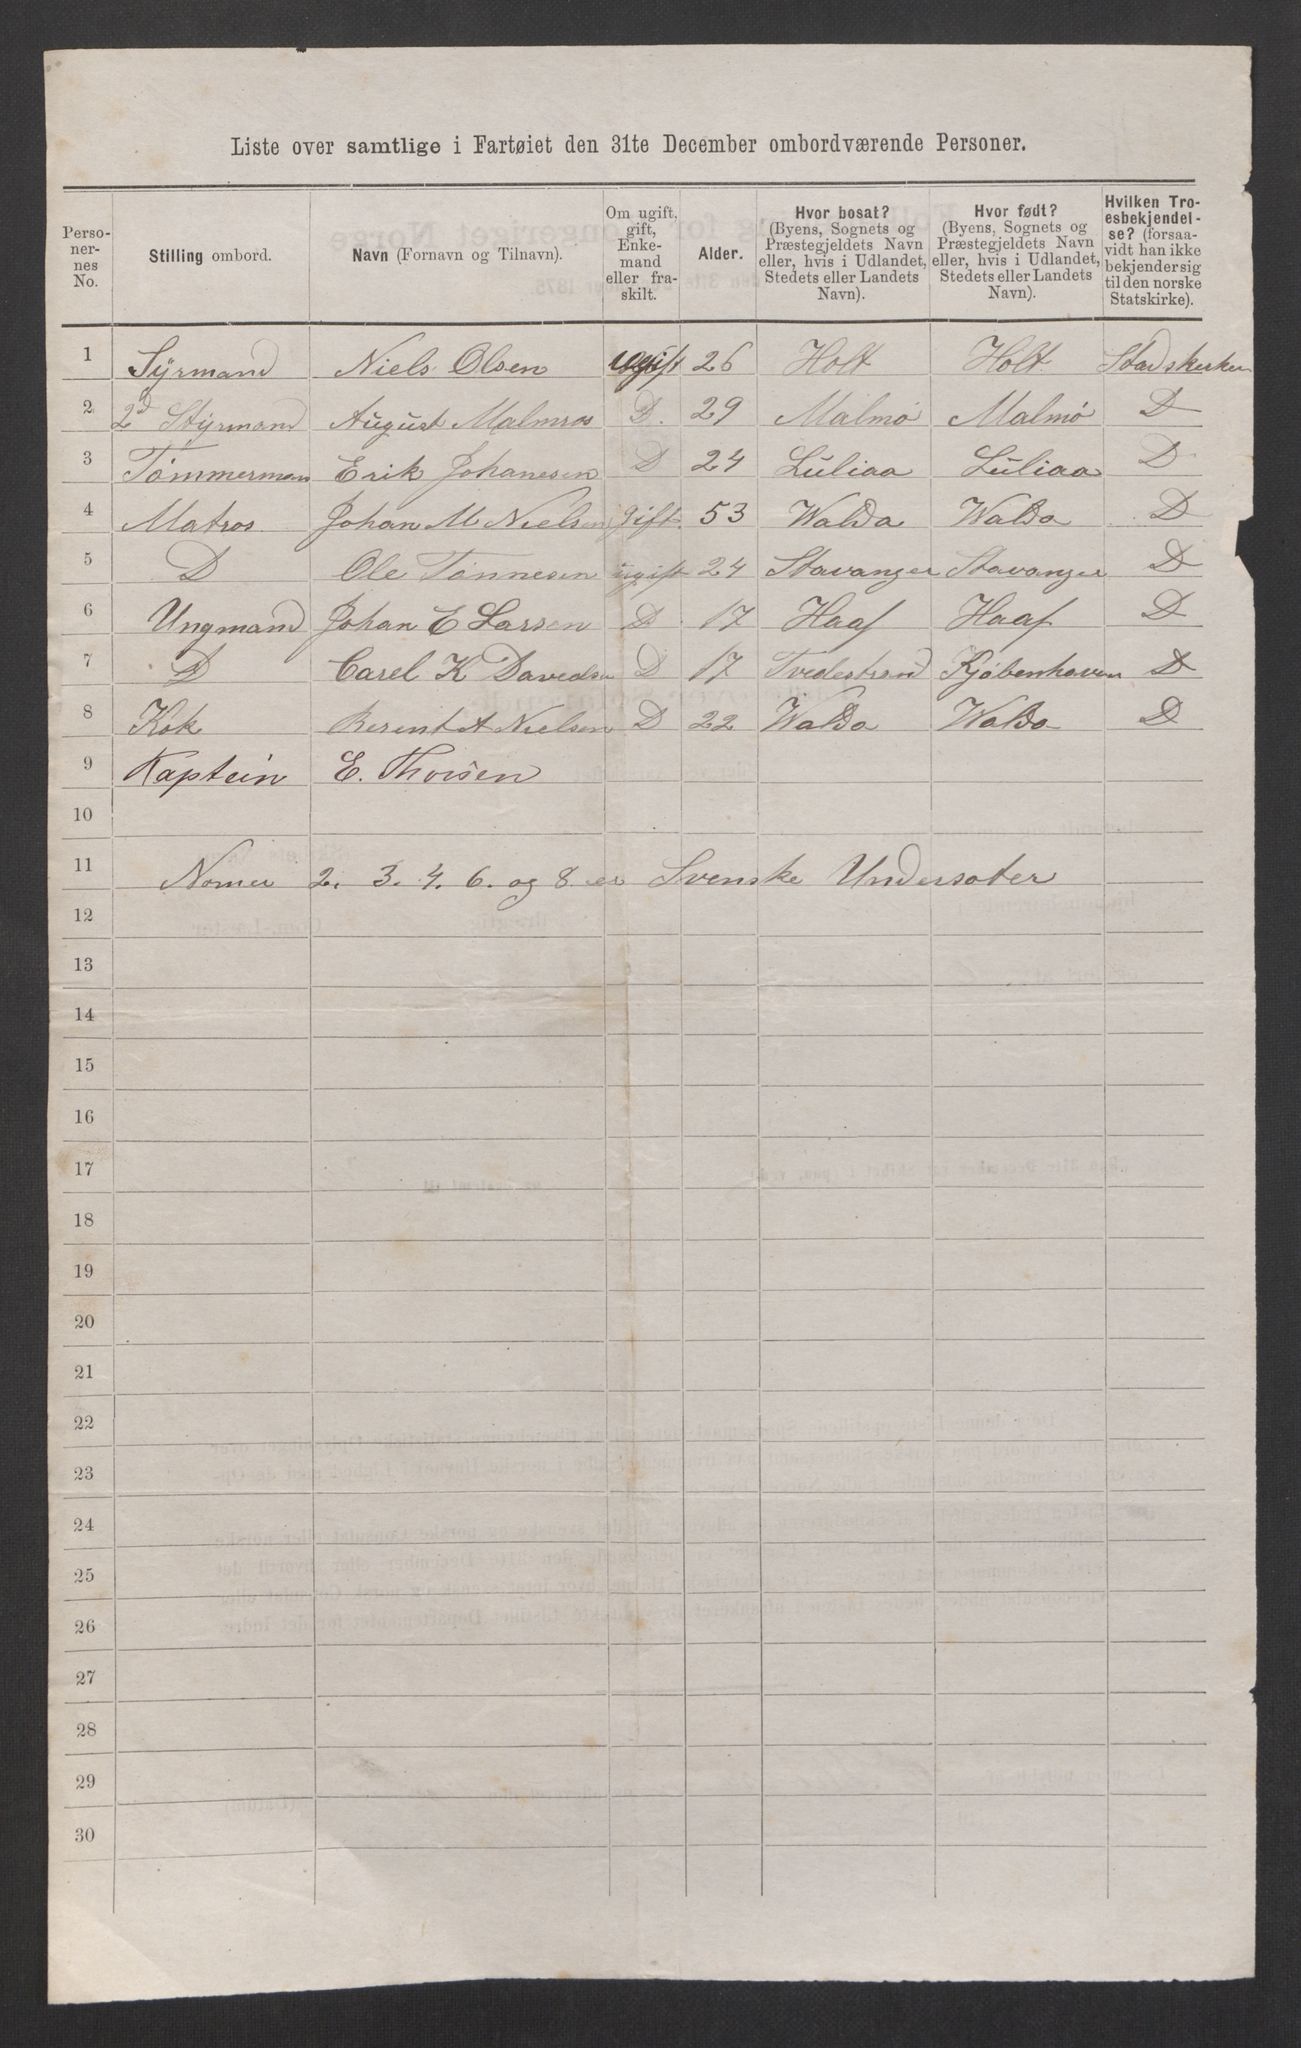 Liste over samtlige i Fartøiet den 31te December ombordværende Personer.
Personernes No. | Stilling ombord. | Navn (Fornavn og Tilnavn). | Om ugift, gift, Enkemand eller fraskilt. | Alder. | Hvor bosat? (Byens, Sognets og Præstegjeldets Navn eller, hvis i Udlandet, Stedets eller Landets Navn). | Hvor født? (Byens, Sognets og Præstegjeldets Navn eller, hvis i Udlandet, Stedets eller Landets Navn). | Hvilken Troesbekjendelse? (forsaavidt han ikke bekjender sig til den norske Statskirke).
1 Syrmand Niels Olsen ugift 26 Holt Holt Stadskerken
2 2d Styrmand August Malmros D. 29 Malmø Malmø D
3 Tømmerman Erik Johanesen D 24 Luliaa Luliaa D
4 Matros Johan M Nielsen gift 53 Walda Walda D
5 D Ole Tønnesen ugift 24 Stavanger Stavanger D
6 Ungmand Johan E Larsen D 17 Haaf Haaf D
7 D Carel K Davedsn D 17 Tvedestrand Kjøbenhaven D
8 Kok Berent A Nielsen D 22 Walda Walda D
9 Kaptein E. Thorsen
10
11 Nomer 2. 3. 4. 6. og 8. er Svenske Undersoter
12
13
14
15
16
17
18
19
20
21
22
23
24
25
26
27
28
29
30